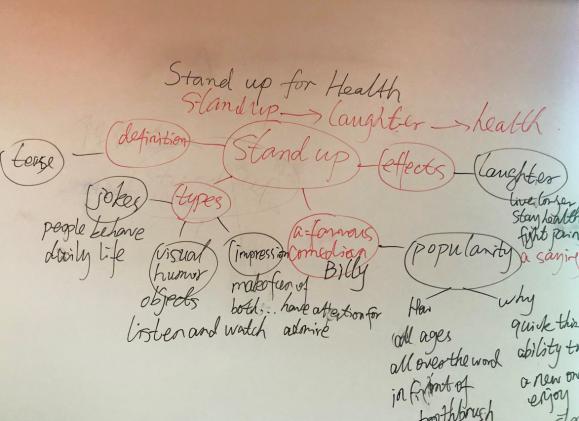 Stand up for Health
Stand up → laughter → health
definition
Stand up
effects
tense
laughter
live longer
stay health
fight pain
a saying
jokes
people behave
daily life
types
visual
humor
objects
listen and watch
impression
make fun of
both... have affection for
admire
a famous
comedian
Billy
popularity
How
all ages
all over the word
in front of
toothbrush
why
quick thi
ability to
a new on
enjoy